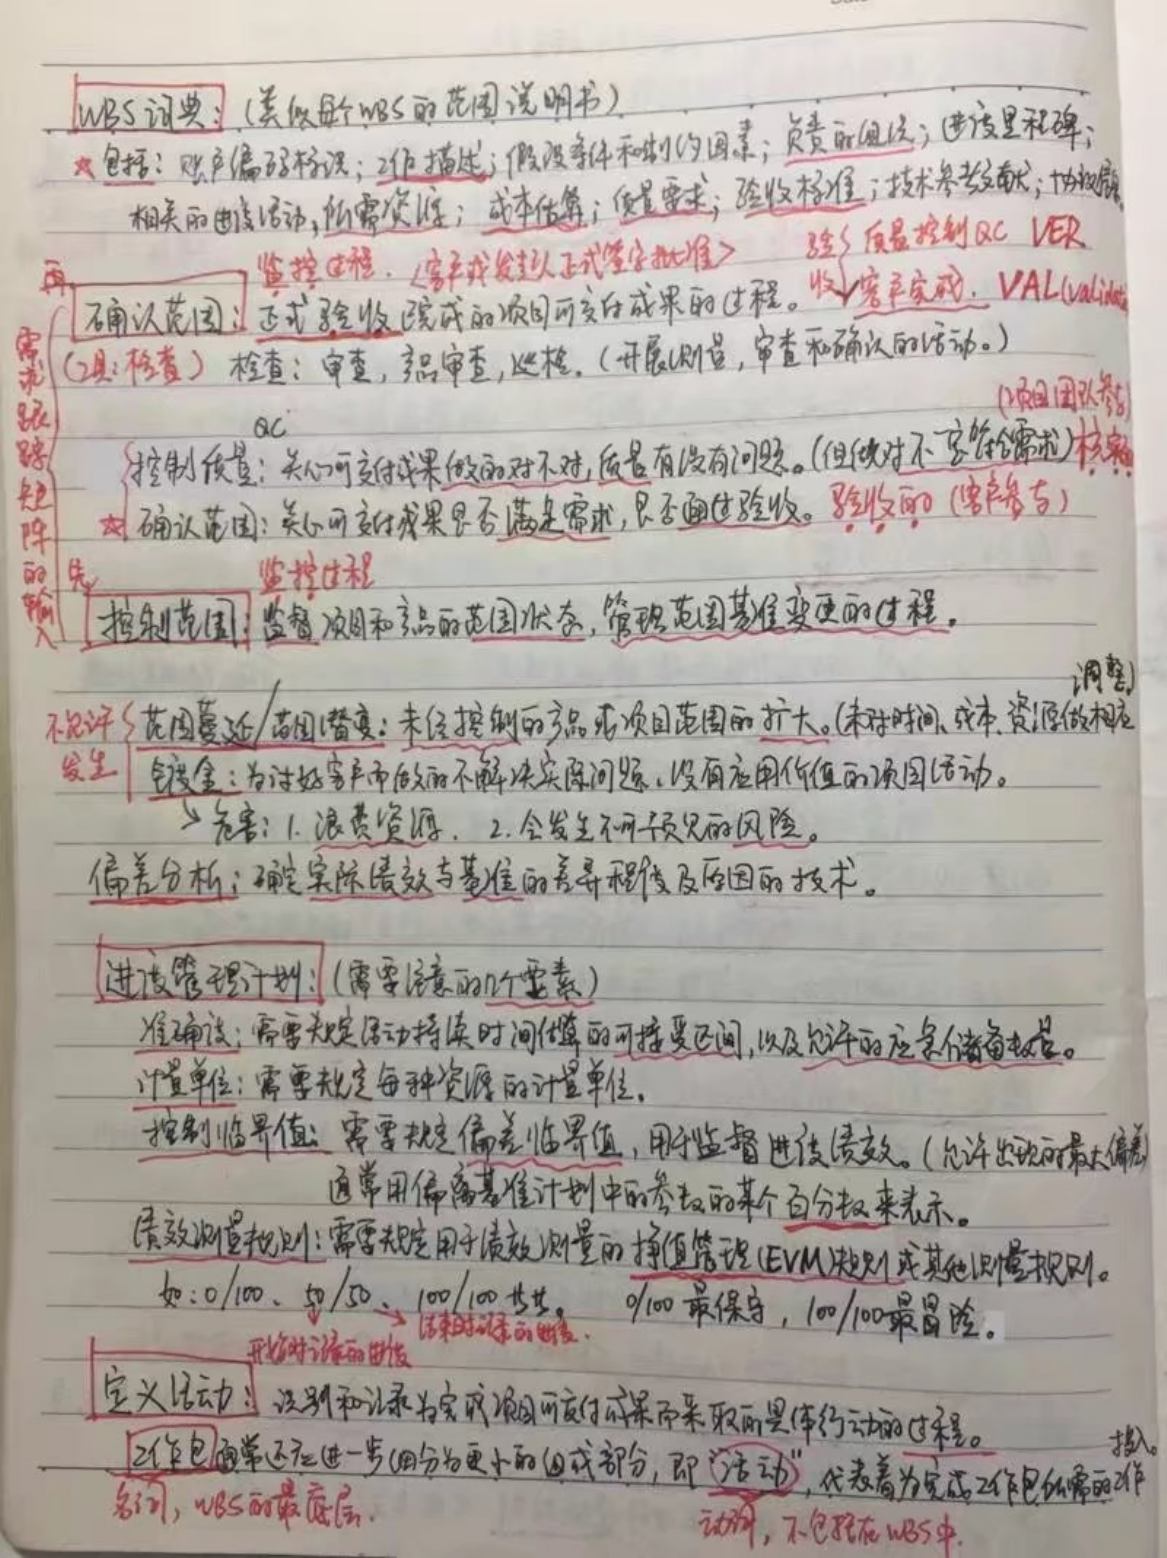 WBS词典:(类似每个WBS的范围说明书)
☆包括:账户编码标识;工作描述;假设条件和制约因素;负责的组织;进度里程碑;
相关的进度活动;所需资源;成本估算;质量要求;验收标准;技术参考文献;协议信息。
监控过程.〈客户或发起人正式签字批准〉
验收{质量控制QC VER
客户完成. VAL(validate
再
确认范围:正式验收已完成的项目可交付成果的过程。
(工具:检查) 检查:审查,产品审查,巡检.(开展测量,审查和确认的活动。)
需求跟踪矩阵的输入
(项目团队参与)
QC
控制质量:关心可交付成果做的对不对,质量有没有问题。(但做对不一定符合需求)核实的
☆确认范围:关心可交付成果是否满足需求,是否通过验收。验收的(客户参与)
先
监控过程
控制范围:监督项目和产品的范围状态,管理范围基准变更的过程。
调整)
不允许发生{范围蔓延/范围潜变:未经控制的产品或项目范围的扩大。(未对时间、成本、资源做相应
镀金:为讨好客户而做的不解决实际问题、没有应用价值的项目活动。
→危害:1.浪费资源. 2.会发生不可预见的风险。
偏差分析:确定实际绩效与基准的差异程度及原因的技术。
进度管理计划:(需要注意的几个要素)
准确度:需要规定活动持续时间估算的可接受区间,以及允许的应急储备数量。
计量单位:需要规定每种资源的计量单位.
控制临界值:需要规定偏差临界值,用于监督进度绩效。(允许出现的最大偏差)
通常用偏离基准计划中的参数的某个百分数来表示。
绩效测量规则:需要规定用于绩效测量的挣值管理(EVM)规则或其他测量规则。
如:0/100、50/50、100/100等等。 0/100最保守,100/100最冒险。
→结束时记录的进度.
开始时记录的进度
定义活动:识别和记录为完成项目可交付成果而采取的具体行动的过程。
工作包通常还应进一步细分为更小的组成部分,即“活动”,代表着为完成工作包所需的工作
投入。
名词,WBS的最底层.
动词,不包括在WBS中.